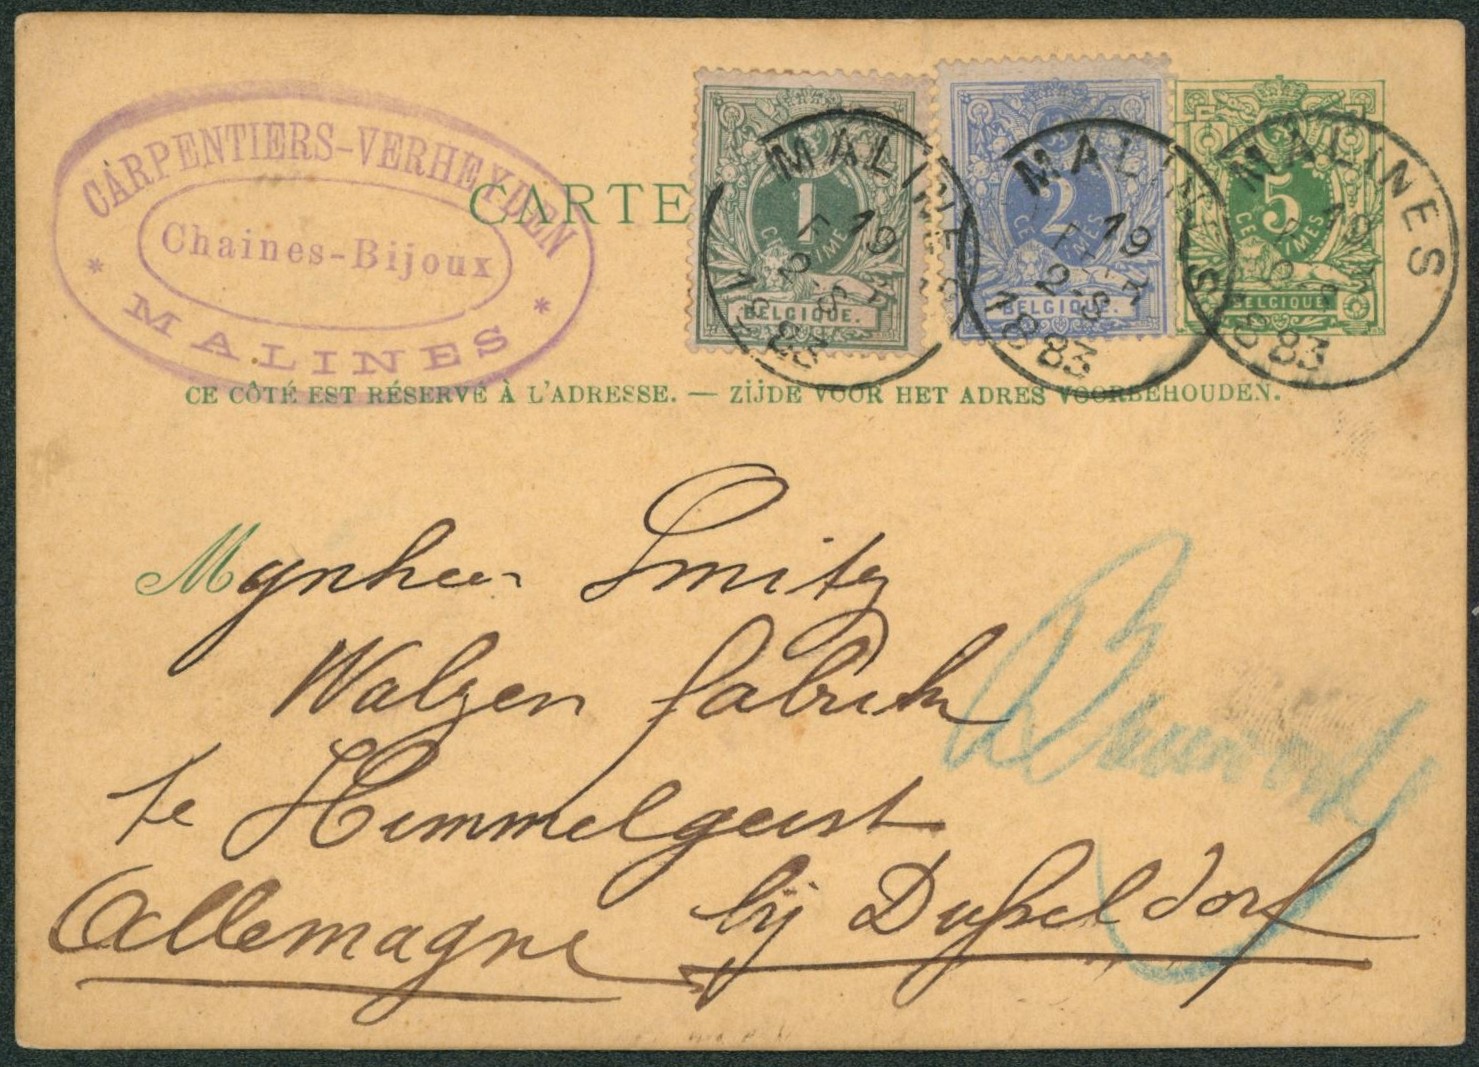 CARPENTIERS-VERHEYDEN
Chaines-Bijoux
* MALINES *
CARTE
1
CENTIME
BELGIQUE.
2
CENTIMES
BELGIQUE.
5
CENTIMES
BELGIQUE
MALINES
19
83
MALINES
19
83
MALINES
19
83
CE CÔTÉ EST RÉSERVÉ À L'ADRESSE. — ZIJDE VOOR HET ADRES VOORBEHOUDEN.
Mynheer Smitz
Walzen fabrik
te Himmelgeist
Allemagne bij Dusseldorf